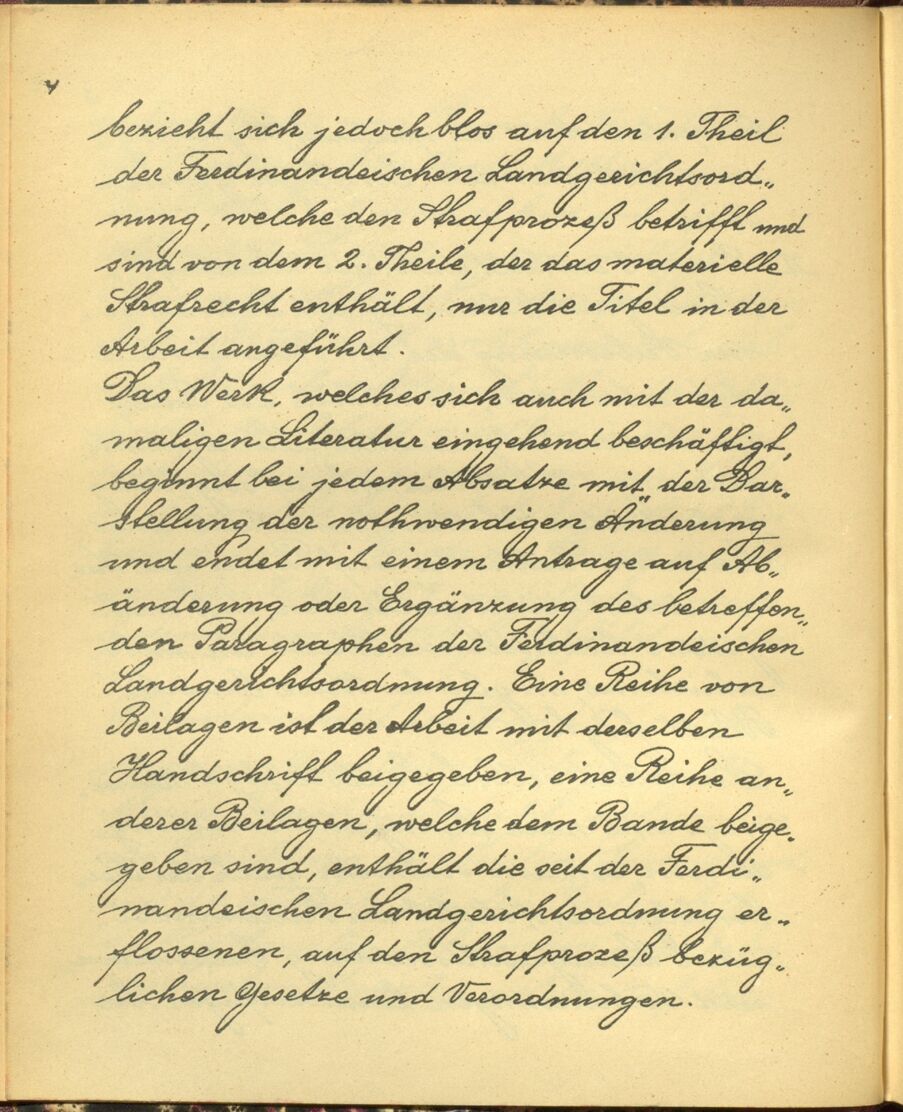 4
bezieht sich jedoch blos auf den 1. Theil
der Ferdinandeischen Landgerichtsord„
nung, welche den Strafprozeß betrifft und
sind von dem 2. Theile, der das materielle
Strafrecht enthält, nur die Titel in der
Arbeit angeführt.
Das Werk, welches sich auch mit der da„
maligen Literatur eingehend beschäftigt,
beginnt bei jedem Absatze mit der Dar„
stellung der nothwendigen Änderung
und endet mit einem Antrage auf Ab„
änderung oder Ergänzung des betreffen„
den Paragraphen der Ferdinandeischen
Landgerichtsordnung. Eine Reihe von
Beilagen ist der Arbeit mit derselben
Handschrift beigegeben, eine Reihe an„
derer Beilagen, welche dem Bande beige„
geben sind, enthält die seit der Ferdi„
nandeischen Landgerichtsordnung er„
flossenen, auf den Strafprozeß bezüg„
lichen Gesetze und Verordnungen.